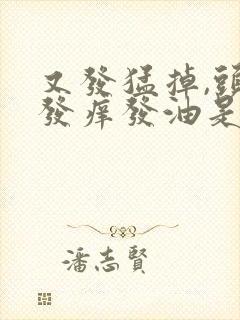 又發猛掉,頭
發癢發油是
潘志賢